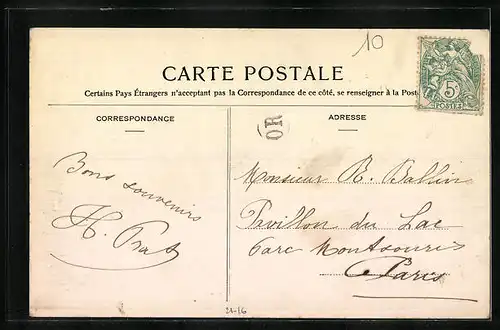 10
CARTE POSTALE
Certains Pays Étrangers n'acceptant pas la Correspondance de ce côté, se renseigner à la Post
5c
POSTES
CORRESPONDANCE
ADRESSE
OR
Bons souvenirs
H. Bat
Monsieur R. Ballin
Pavillon du Lac
Parc Montsouris
Paris
21-16